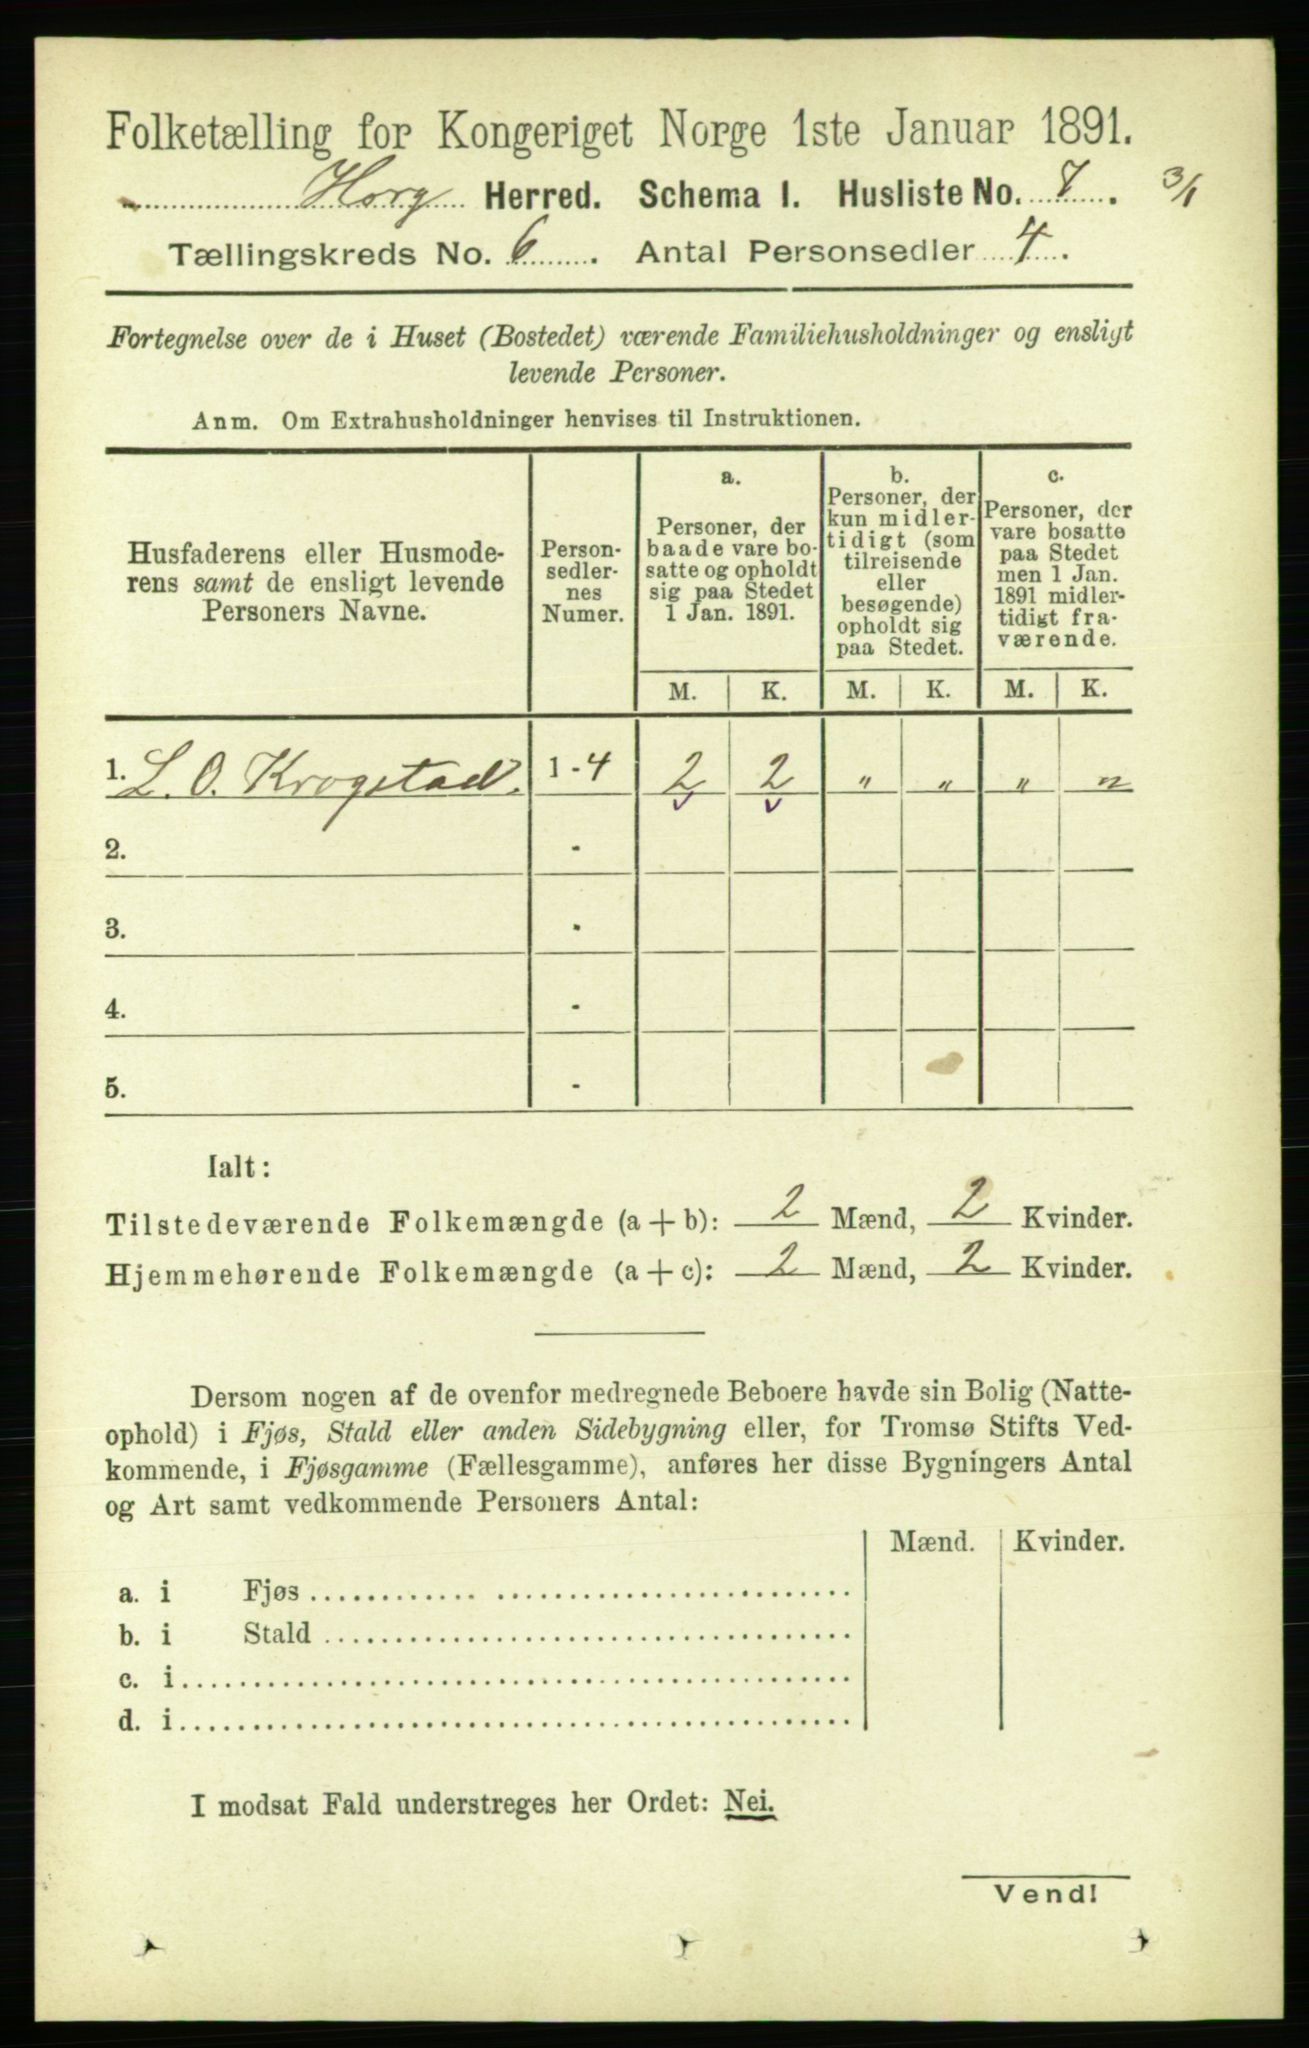 Folketælling for Kongeriget Norge 1ste Januar 1891.
Horg Herred. Schema I. Husliste No. 7. 3/1
Tællingskreds No. 6. Antal Personsedler 4.
Fortegnelse over de i Huset (Bostedet) værende Familiehusholdninger og ensligt
levende Personer.
Anm. Om Extrahusholdninger henvises til Instruktionen.
Husfaderens eller Husmode-
rens samt de ensligt levende
Personers Navne.
Person-
sedler-
nes
Numer.
a.
Personer, der
baade vare bo-
satte og opholdt
sig paa Stedet
1 Jan. 1891.
b.
Personer, der
kun midler-
tidigt (som
tilreisende
eller
besøgende)
opholdt sig
paa Stedet.
c.
Personer, der
vare bosatte
paa Stedet
men 1 Jan.
1891 midler-
tidigt fra-
værende.
M. K. M. K. M. K.
1. L. O. Krogstad. 1-4 2 2 " " " "
2. -
3. -
4. -
5. -
Ialt:
Tilstedeværende Folkemængde (a+b): 2 Mænd, 2 Kvinder.
Hjemmehørende Folkemængde (a+c): 2 Mænd, 2 Kvinder.
Dersom nogen af de ovenfor medregnede Beboere havde sin Bolig (Natte-
ophold) i Fjøs, Stald eller anden Sidebygning eller, for Tromsø Stifts Ved-
kommende, i Fjøsgamme (Fællesgamme), anføres her disse Bygningers Antal
og Art samt vedkommende Personers Antal:
Mænd. Kvinder.
a. i Fjøs
b. i Stald
c. i
d. i
I modsat Fald understreges her Ordet: Nei.
Vend!